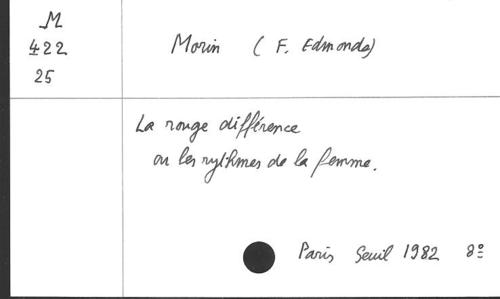 M
422
25
Morin ( F. Edmonde)
La rouge différence
ou les rythmes de la femme.
Paris Seuil 1982 8º